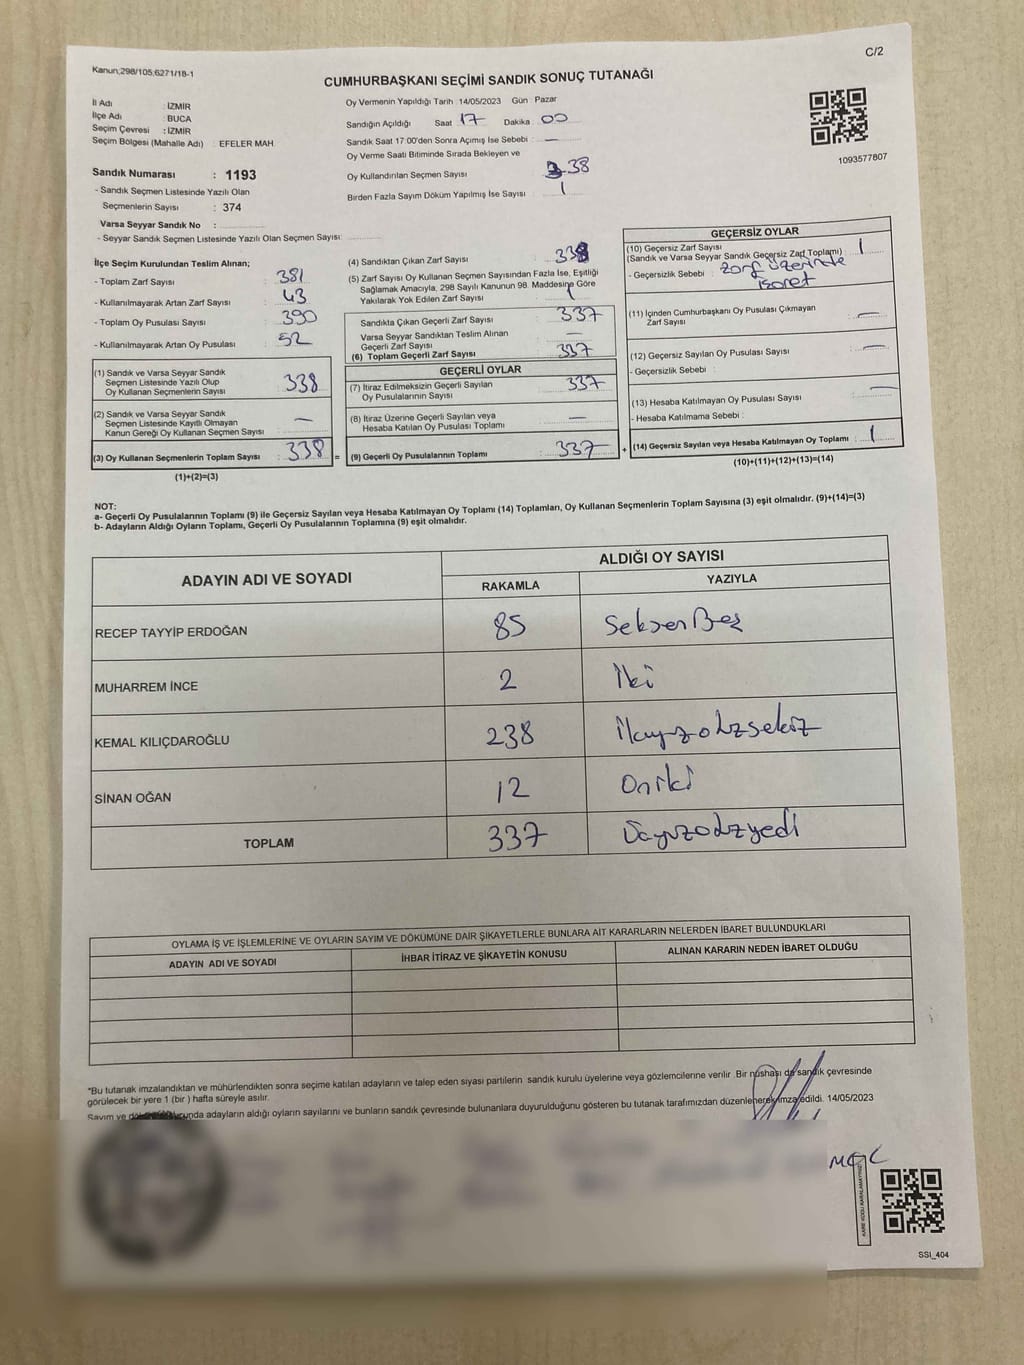 C/2
Kanun;298/105,6271/18-1
CUMHURBAŞKANI SEÇİMİ SANDIK SONUÇ TUTANAĞI
İl Adı : İZMİR
İlçe Adı : BUCA
Seçim Çevresi : İZMİR
Seçim Bölgesi (Mahalle Adı) : EFELER MAH.
Oy Vermenin Yapıldığı Tarih : 14/05/2023 Gün : Pazar
Sandığın Açıldığı Saat : 17 Dakika : 00
Sandık Saat 17:00'den Sonra Açımış İse Sebebi : —
Oy Verme Saati Bitiminde Sırada Bekleyen ve
Oy Kullandırılan Seçmen Sayısı : 338
Birden Fazla Sayım Döküm Yapılmış İse Sayısı : 1
1093577807
Sandık Numarası : 1193
- Sandık Seçmen Listesinde Yazılı Olan
Seçmenlerin Sayısı : 374
Varsa Seyyar Sandık No :
- Seyyar Sandık Seçmen Listesinde Yazılı Olan Seçmen Sayısı:
İlçe Seçim Kurulundan Teslim Alınan;
- Toplam Zarf Sayısı : 381
- Kullanılmayarak Artan Zarf Sayısı : 43
- Toplam Oy Pusulası Sayısı : 390
- Kullanılmayarak Artan Oy Pusulası : 52
(1) Sandık ve Varsa Seyyar Sandık
Seçmen Listesinde Yazılı Olup
Oy Kullanan Seçmenlerin Sayısı : 338
(2) Sandık ve Varsa Seyyar Sandık
Seçmen Listesinde Kayıtlı Olmayan
Kanun Gereği Oy Kullanan Seçmen Sayısı : —
(3) Oy Kullanan Seçmenlerin Toplam Sayısı : 338 =
(1)+(2)=(3)
(4) Sandıktan Çıkan Zarf Sayısı : 338
(5) Zarf Sayısı Oy Kullanan Seçmen Sayısından Fazla İse, Eşitliği
Sağlamak Amacıyla, 298 Sayılı Kanunun 98. Maddesine Göre
Yakılarak Yok Edilen Zarf Sayısı :
Sandıkta Çıkan Geçerli Zarf Sayısı : 337
Varsa Seyyar Sandıktan Teslim Alınan
Geçerli Zarf Sayısı : —
(6) Toplam Geçerli Zarf Sayısı : 337
GEÇERLİ OYLAR
(7) İtiraz Edilmeksizin Geçerli Sayılan
Oy Pusulalarının Sayısı : 337
(8) İtiraz Üzerine Geçerli Sayılan veya
Hesaba Katılan Oy Pusulası Toplamı : —
(9) Geçerli Oy Pusulalarının Toplamı : 337 +
GEÇERSİZ OYLAR
(10) Geçersiz Zarf Sayısı : 1
(Sandık ve Varsa Seyyar Sandık Geçersiz Zarf Toplamı)
- Geçersizlik Sebebi : zarf üzerinde
işaret
(11) İçinden Cumhurbaşkanı Oy Pusulası Çıkmayan
Zarf Sayısı : —
(12) Geçersiz Sayılan Oy Pusulası Sayısı : —
- Geçersizlik Sebebi :
(13) Hesaba Katılmayan Oy Pusulası Sayısı : —
- Hesaba Katılmama Sebebi :
(14) Geçersiz Sayılan veya Hesaba Katılmayan Oy Toplamı : 1
(10)+(11)+(12)+(13)=(14)
NOT:
a- Geçerli Oy Pusulalarının Toplamı (9) ile Geçersiz Sayılan veya Hesaba Katılmayan Oy Toplamı (14) Toplamları, Oy Kullanan Seçmenlerin Toplam Sayısına (3) eşit olmalıdır. (9)+(14)=(3)
b- Adayların Aldığı Oyların Toplamı, Geçerli Oy Pusulalarının Toplamına (9) eşit olmalıdır.
ADAYIN ADI VE SOYADI
ALDIĞI OY SAYISI
RAKAMLA YAZIYLA
RECEP TAYYİP ERDOĞAN 85 Seksen Beş
MUHARREM İNCE 2 İki
KEMAL KILIÇDAROĞLU 238 İkiyüzotuzsekiz
SİNAN OĞAN 12 Oniki
TOPLAM 337 Üçyüzotuzyedi
OYLAMA İŞ VE İŞLEMLERİNE VE OYLARIN SAYIM VE DÖKÜMÜNE DAİR ŞİKAYETLERLE BUNLARA AİT KARARLARIN NELERDEN İBARET BULUNDUKLARI
ADAYIN ADI VE SOYADI İHBAR İTİRAZ VE ŞİKAYETİN KONUSU ALINAN KARARIN NEDEN İBARET OLDUĞU
*Bu tutanak imzalandıktan ve mühürlendikten sonra seçime katılan adayların ve talep eden siyasi partilerin sandık kurulu üyelerine veya gözlemcilerine verilir .Bir nushası da sandık çevresinde
görülecek bir yere 1 (bir ) hafta süreyle asılır.
Sayım ve adayların aldığı oyların sayılarını ve bunların sandık çevresinde bulunanlara duyurulduğunu gösteren bu tutanak tarafımızdan düzenlenerek imza edildi. 14/05/2023
KARE KODU KARALAMAYINIZ
SSI_404